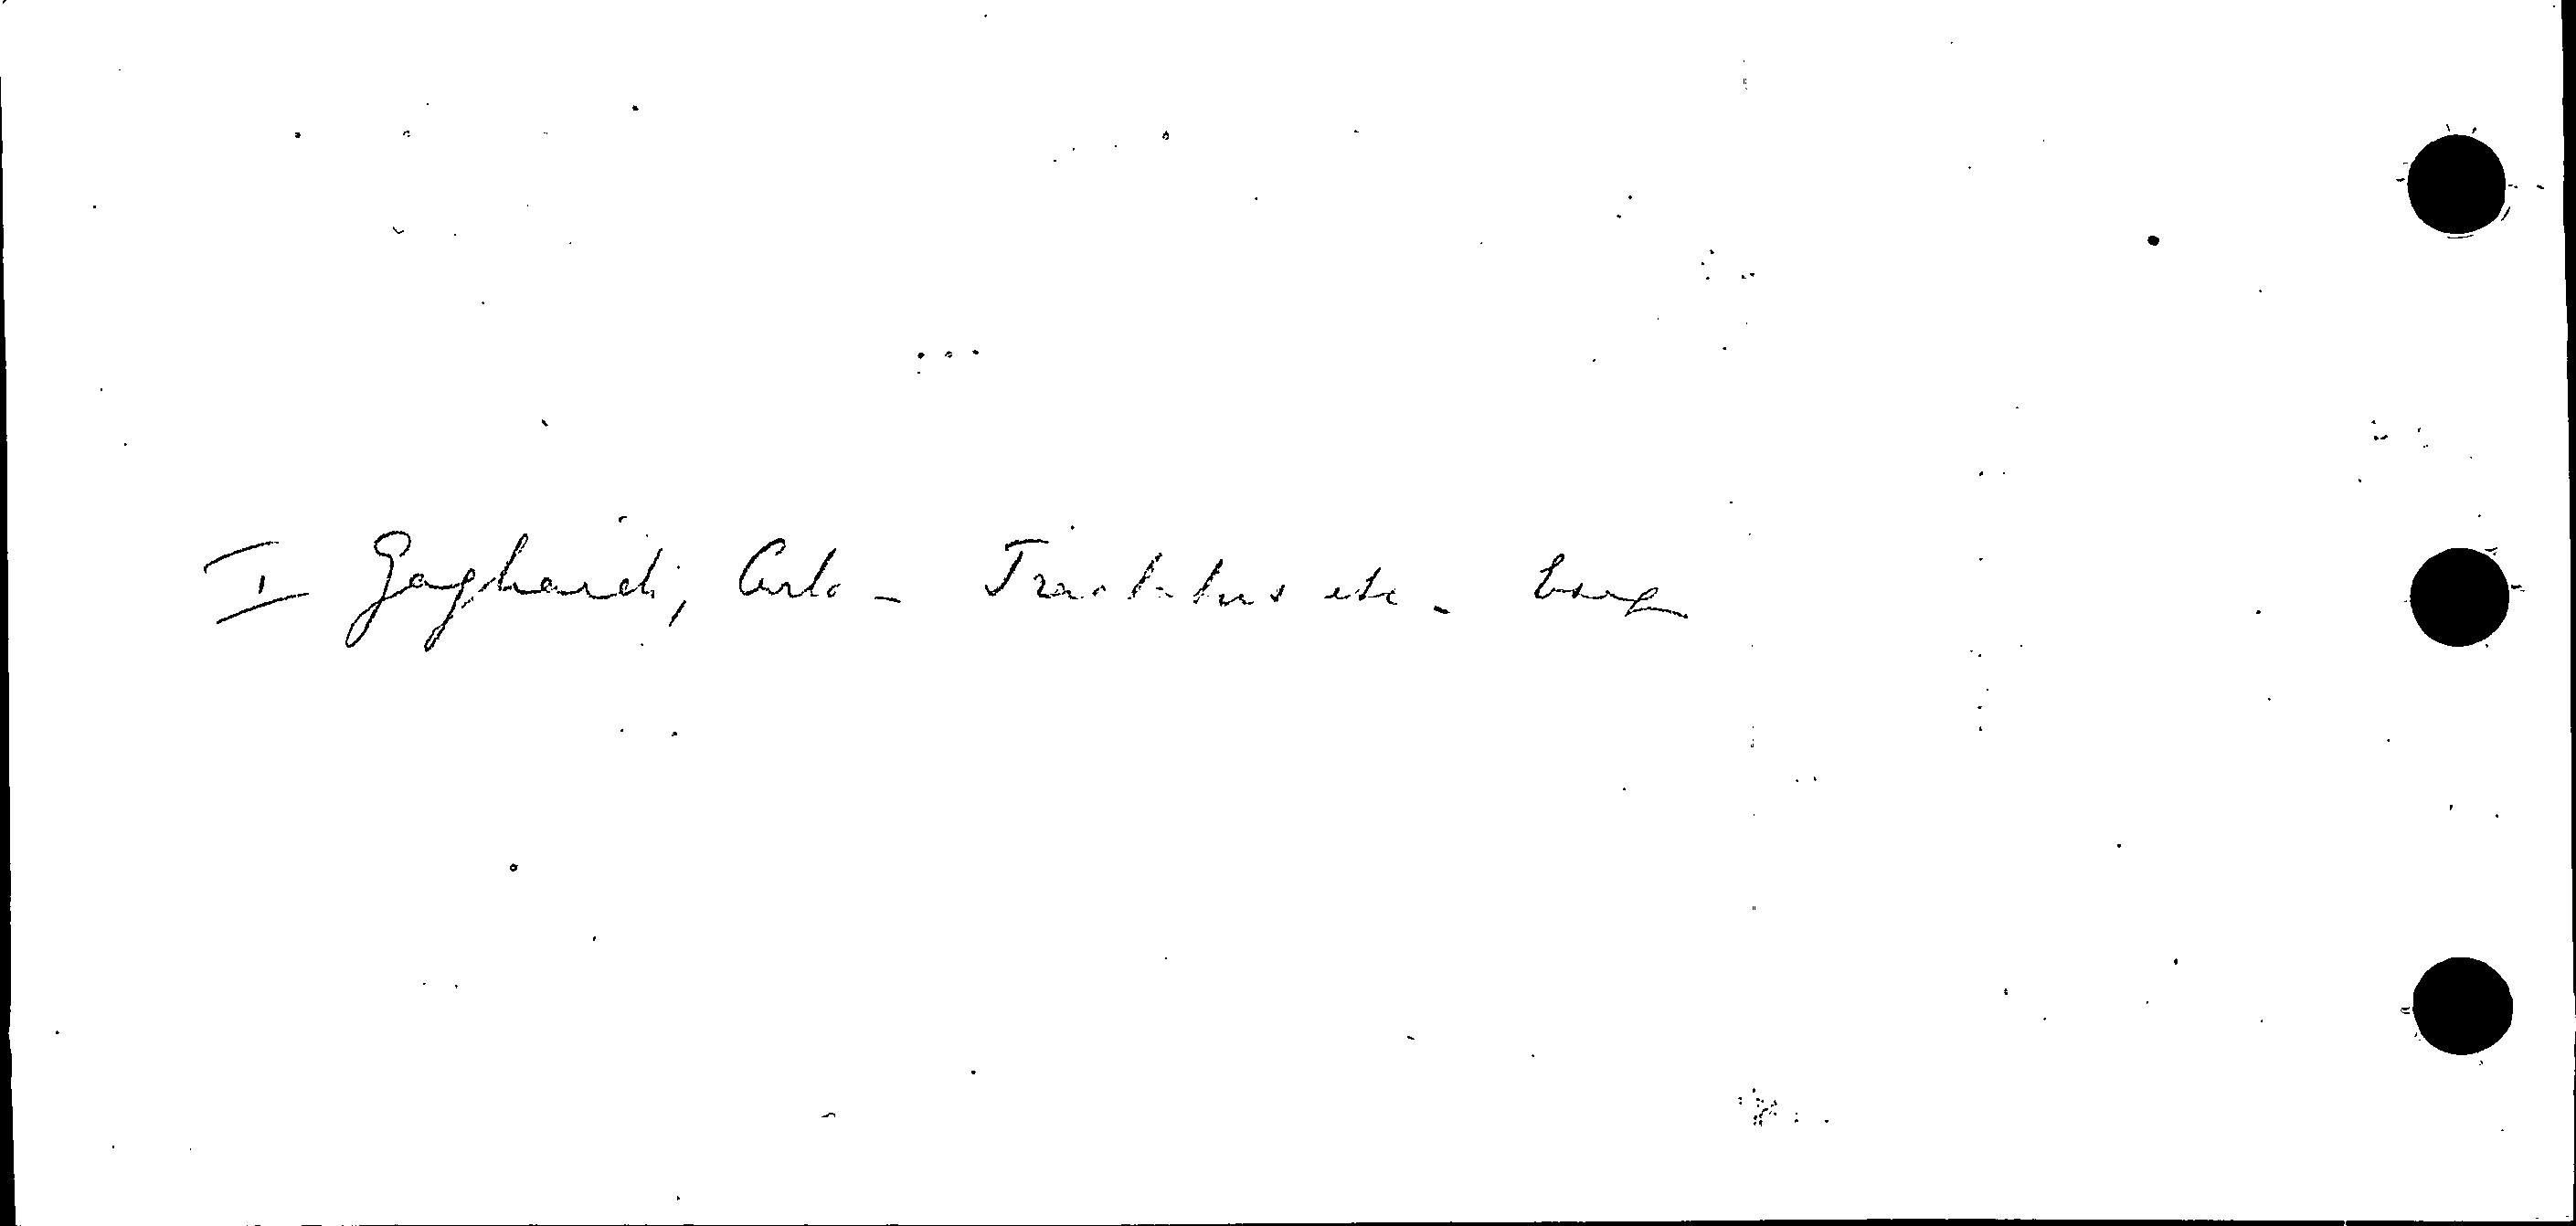 I Gagliardi, Carlo - Tractatus etc -